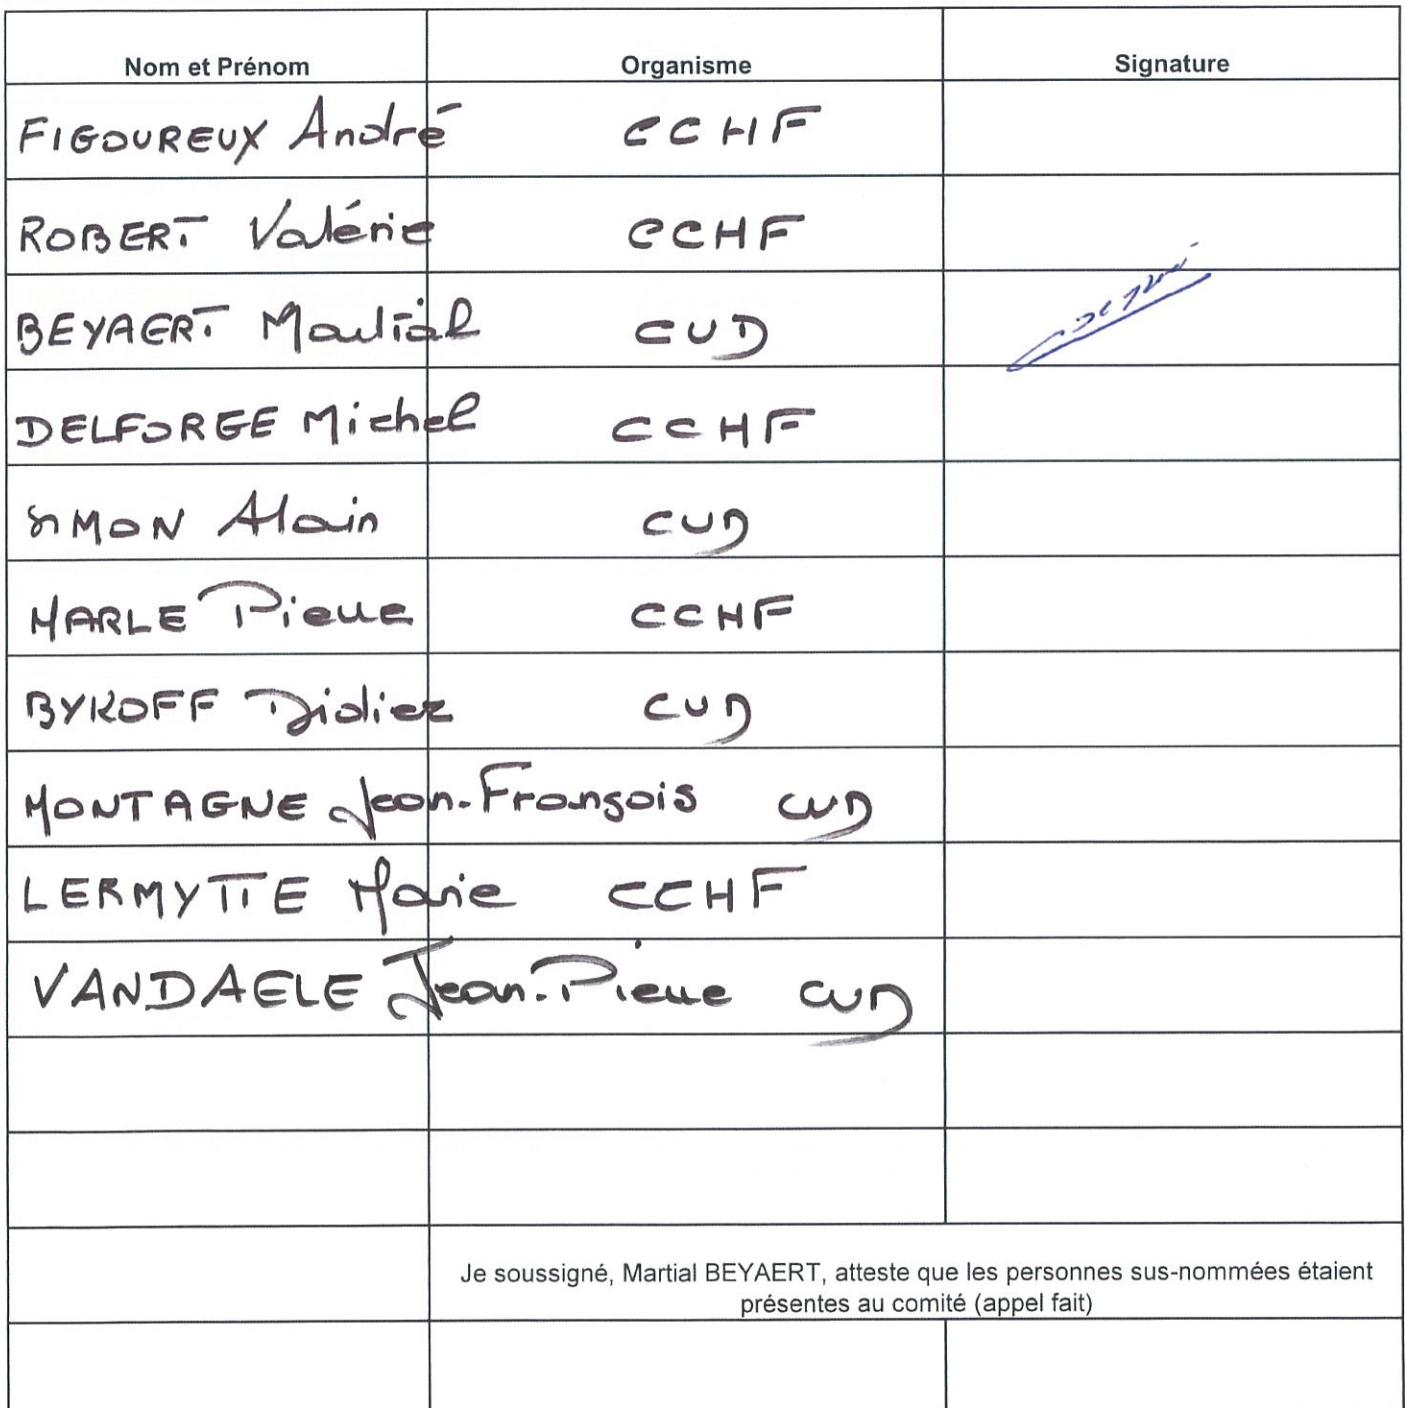 Nom et Prénom Organisme Signature
FIGOUREUX André CCHF
ROBERT Valérie CCHF
BEYAERT Martial CUD
DELFORGE Michel CCHF
SIMON Alain CUD
MARLE Pierre CCHF
BYKOFF Didier CUD
MONTAGNE Jean-François CUD
LERMYTTE Marie CCHF
VANDAELE Jean-Pierre CUD
Je soussigné, Martial BEYAERT, atteste que les personnes sus-nommées étaient
présentes au comité (appel fait)